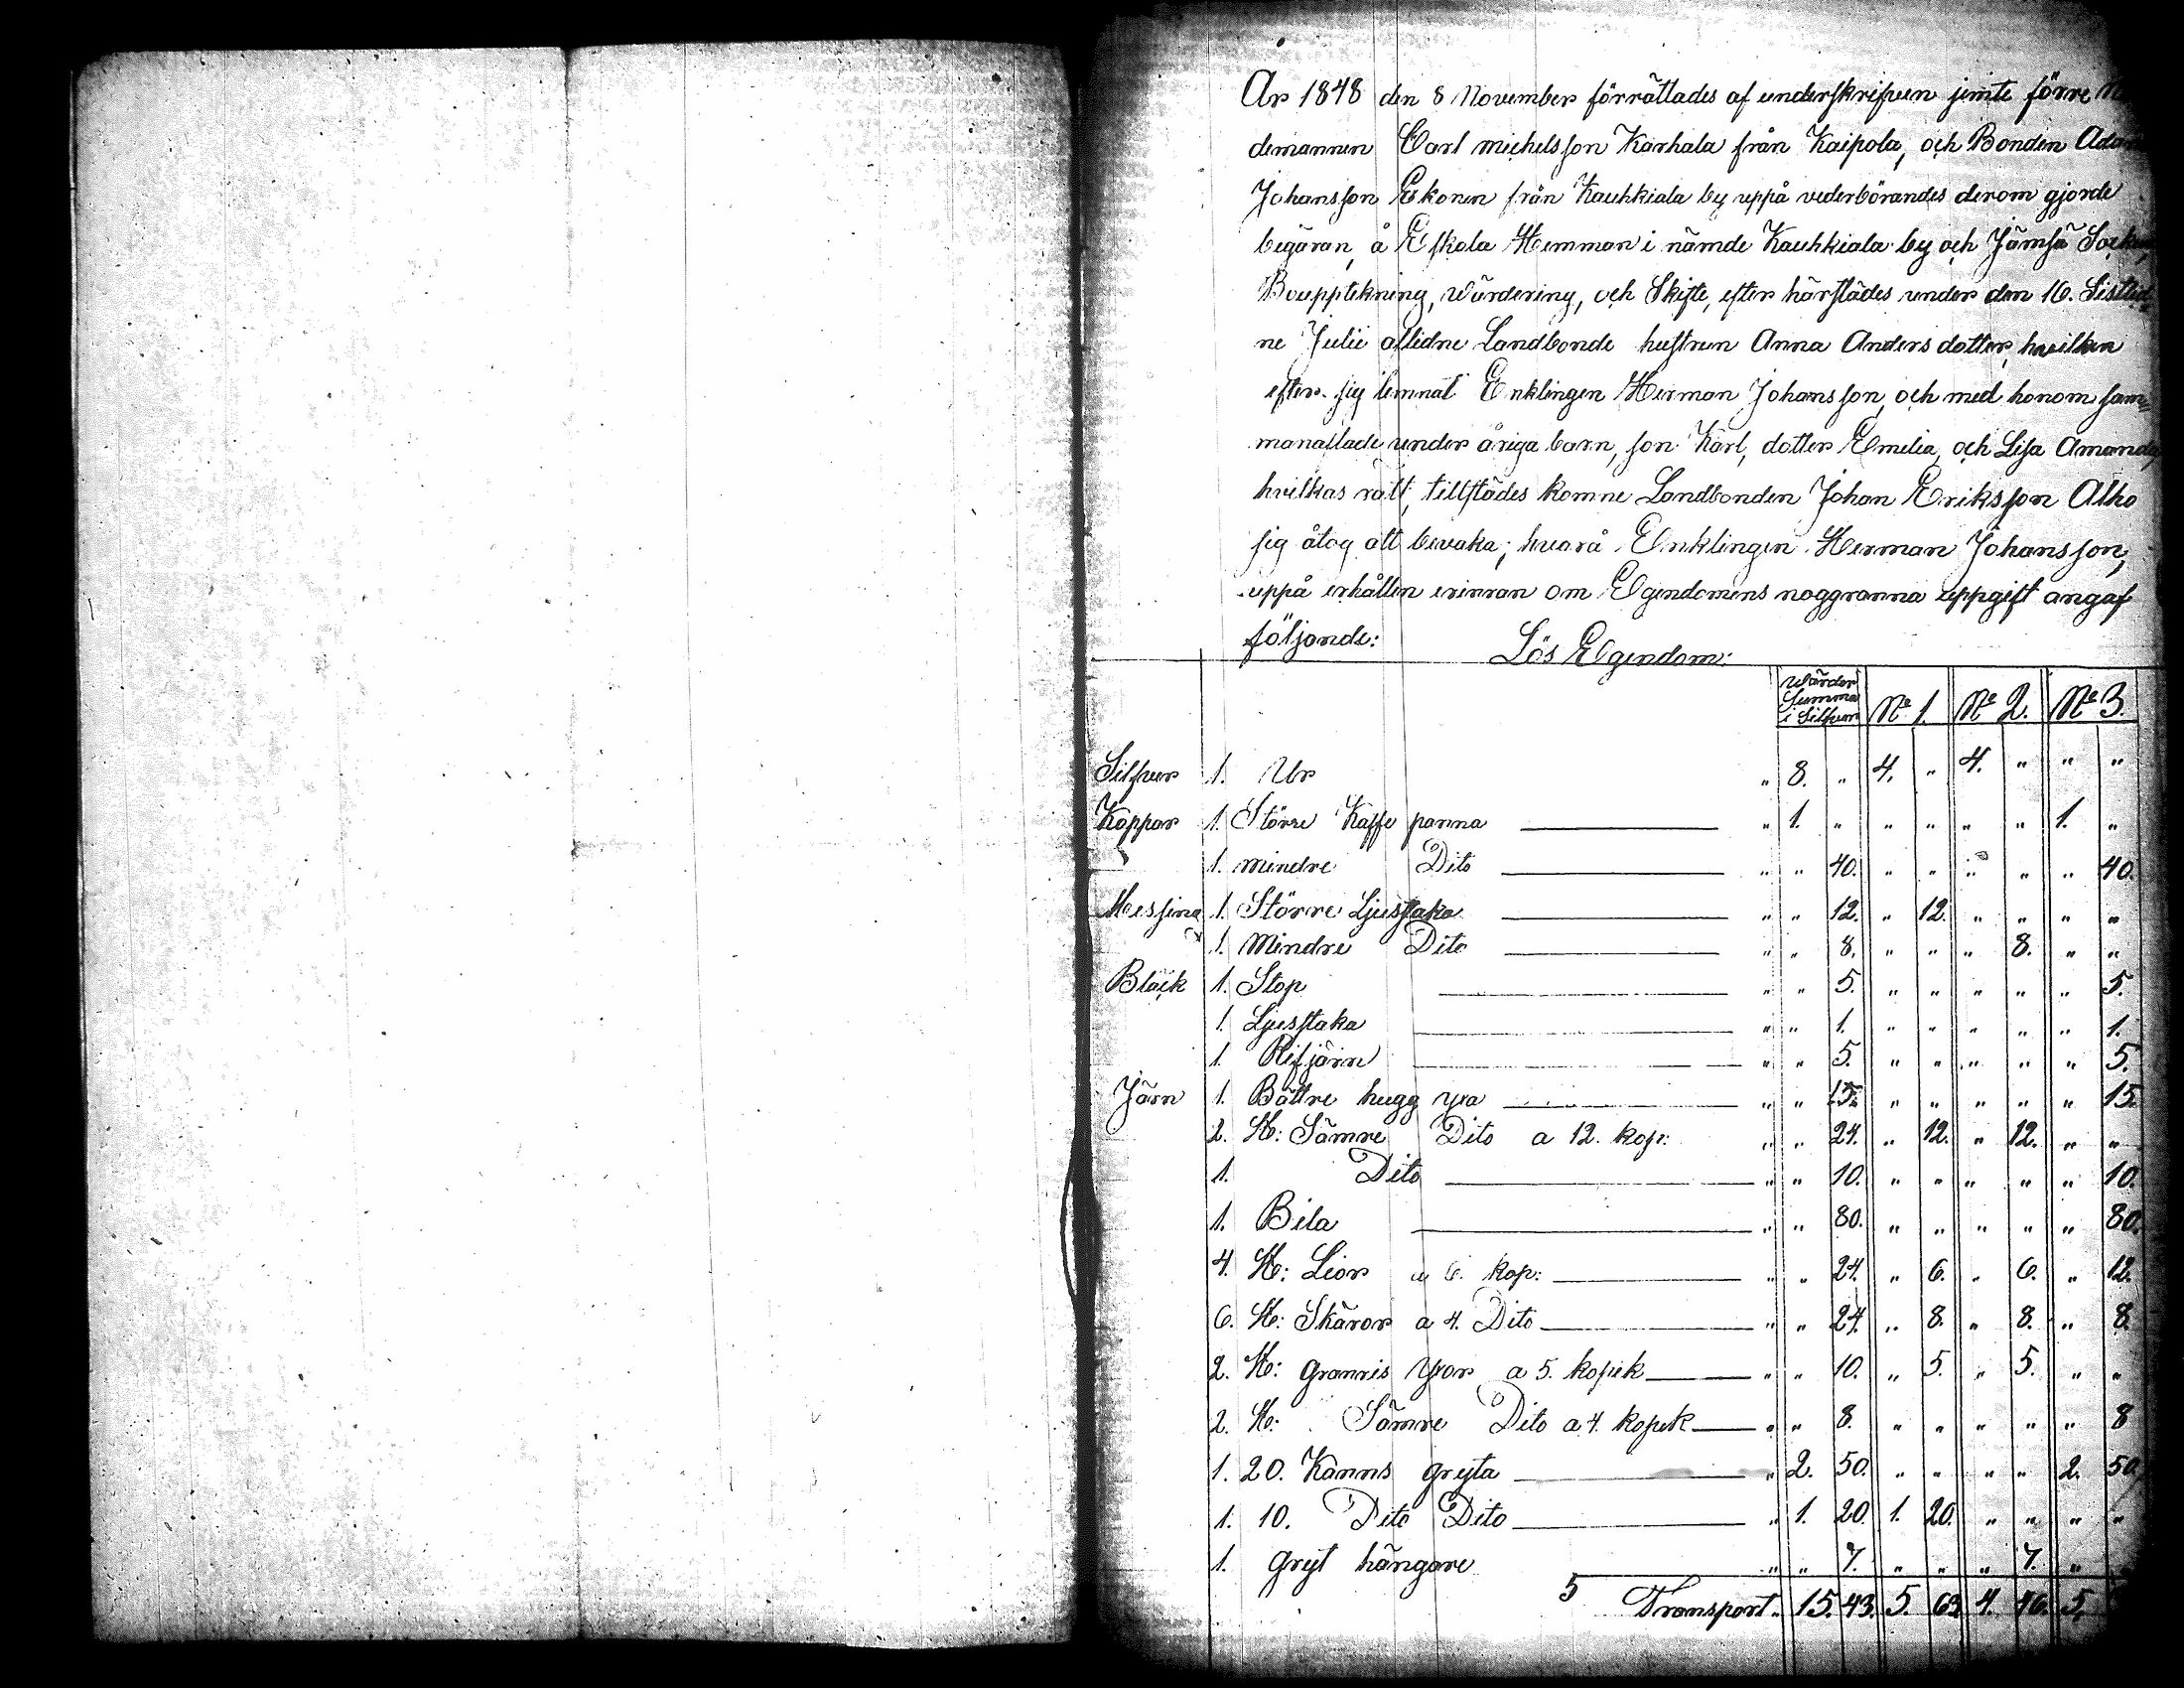 År 1848 den 8 November förrättades af underskrifven jemte förre
demannen Carl Michelsson Karhala från Kaipola, och Bonden Adam
Johansson Ekonen från Kauhkiala by uppå vederbörandes derom gjorde
begäran, å Eskola Hemman i nämde Kauhkiala by och Jämsä Socken,
Boupptekning, Värdering, och Skifte, efter härstädes under den 16. Sistlid-
ne Julii aflidne Landbonde hustrun Anna Anders dotter, hvilken
efter sig lemnat Enklingen Herman Johansson, och med honom sam=
manaflade under åriga barn, son Karl, dotter Emelia, och Lisa Amanda
hvilkas rätt, tillstädes komne Landbonden Johan Eriksson Alho
sig åtog att bevaka; hvarå Enklingen Herman Johansson,
uppå erhållen erinran om Egendomens noggranna uppgift angaf
följande: Lös Egendom:
Värder Summa i Silfver No 1. No 2. No 3.
Silfver 1. Ur " 8. " 4. " 4. " " "
Koppar 1. Större Kaffe panna " 1. " " " " " 1. "
1. mindre Dito " " 40. " " " " " 40.
Messing 1. Större Ljusstake " " 12. " 12. " " " "
1. Mindre Dito " " 8. " " " 8. " "
Bläck 1. Stop " " 5. " " " " " 5.
1. Ljusstaka " " 1. " " " " " 1.
1. Rifjärn " " 5. " " " " " 5.
Järn 1. Bättre hugg yxa " " 15. " " " " " 15.
2. St: Sämre Dito a 12. kop: " " 24. " 12. " 12. " "
1. Dito " " 10. " " " " " 10.
1. Bila " " 80. " " " " " 80.
4. St: Lior a 6. kop: " " 24. " 6. " 6. " 12.
6. St: Skäror a 4. Dito " " 24. " 8. " 8. " 8.
2. St: granris yxor a 5. kopek " " 10. " 5. " 5. " "
2. St: Sämre Dito a 4. kopek " " 8. " " " " " 8
1. 20. Kanns gryta " 2. 50. " " " " 2. 50.
1. 10. Dito Dito " 1. 20. 1. 20. " " " "
1. gryt hängare " " 7. " " " 7. "
5 Transport " 15. 43. 5. 63. 4. 46. 5.